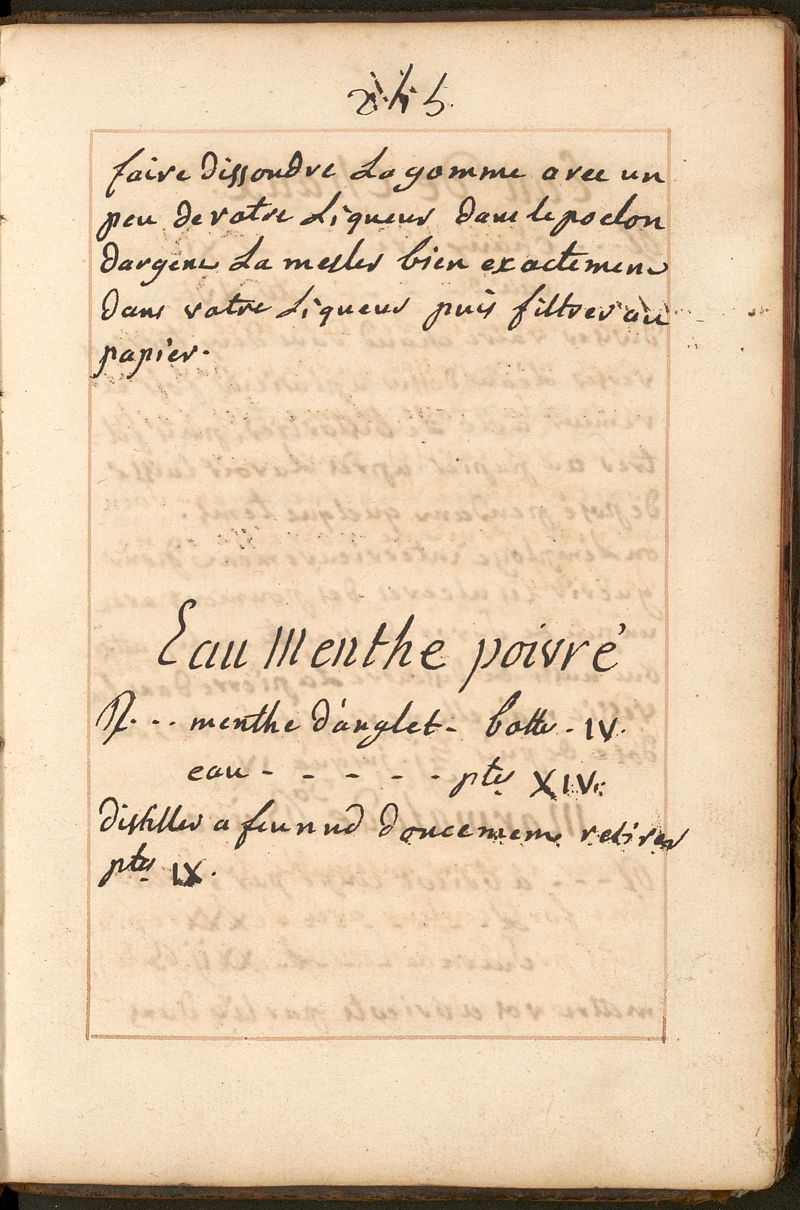 faire dissoudre La gomme avec un
peu de votre Liqueur dans le poelon
dargent La mesler bien exactement
dans votre Liqueur puis filtrer au
papier.
Eau Menthe poivré
R. . . menthe d'anglet - botte - IV.
eau - - - - - ptes XIV.
distiller a feu nud doucement retirer
ptes IX.